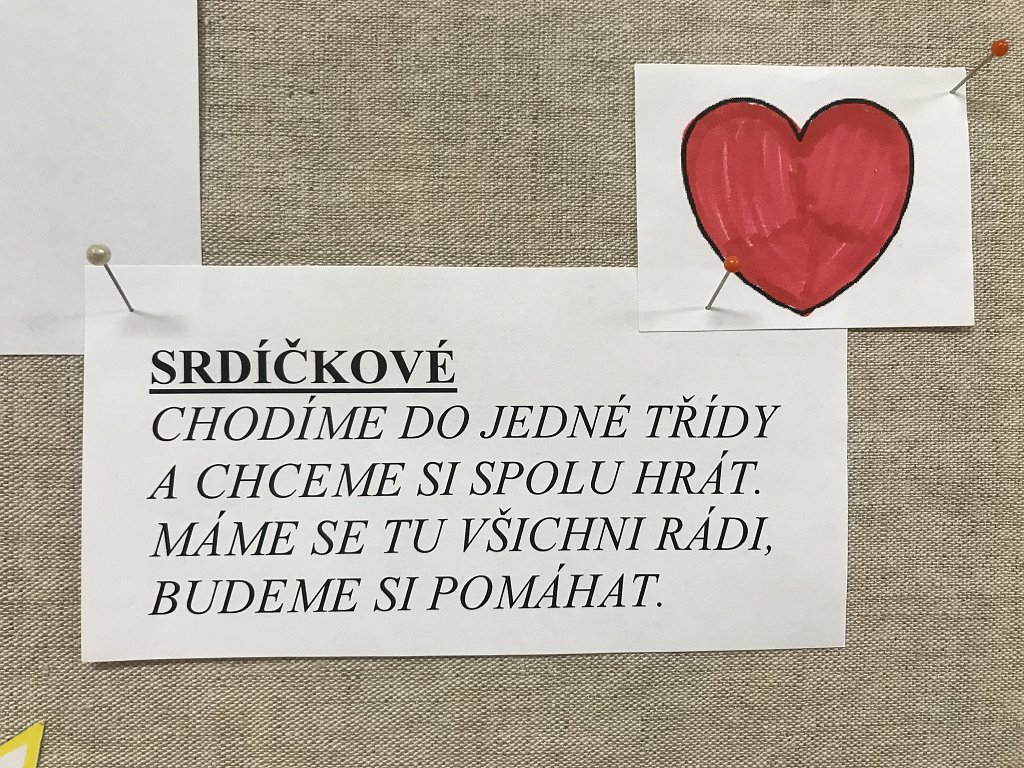 SRDÍČKOVÉ
CHODÍME DO JEDNÉ TŘÍDY
A CHCEME SI SPOLU HRÁT.
MÁME SE TU VŠICHNI RÁDI,
BUDEME SI POMÁHAT.